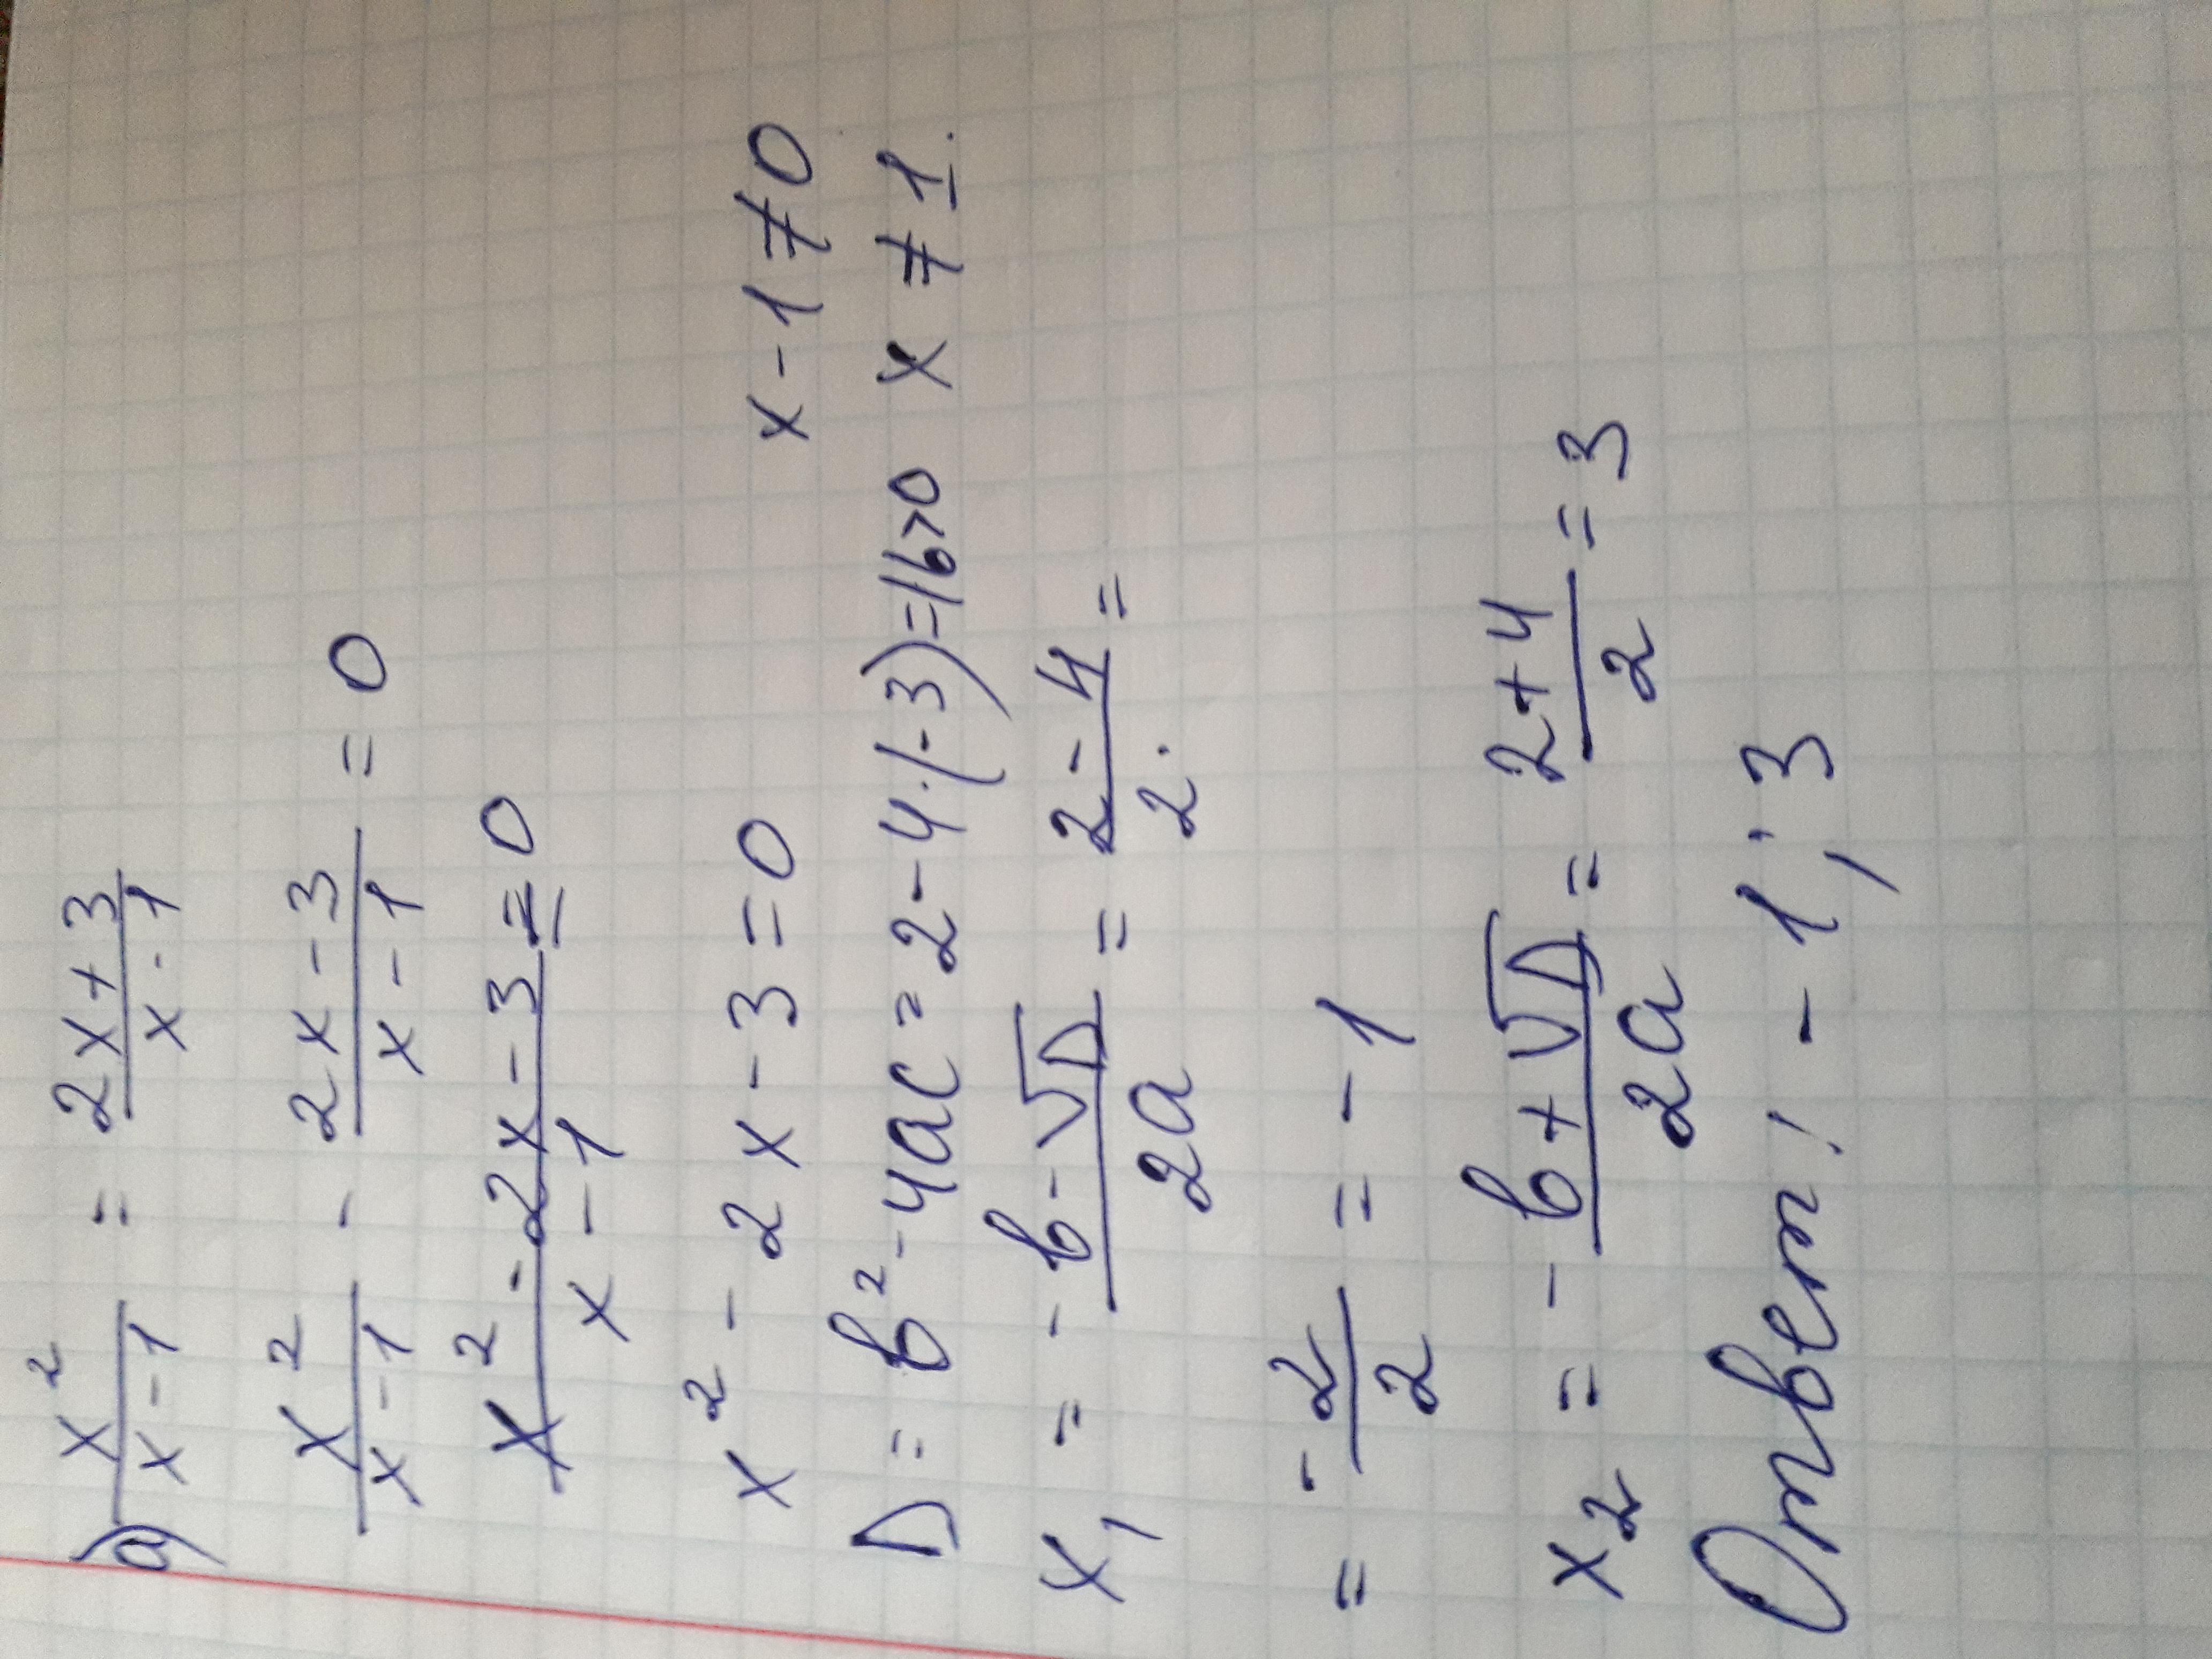 а) x²/(x-1) = (2x+3)/(x-1)
x²/(x-1) - (2x-3)/(x-1) = 0
(x²-2x-3)/(x-1) = 0
x² - 2x - 3 = 0 x - 1 ≠ 0
D = b² - 4ac = 2 - 4·(-3) = 16 > 0 x ≠ 1.
x₁ = -(b-√D)/(2a) = (2-4)/2. =
= -2/2 = -1
x₂ = -(b+√D)/(2a) = (2+4)/2 = 3
Ответ: -1; 3